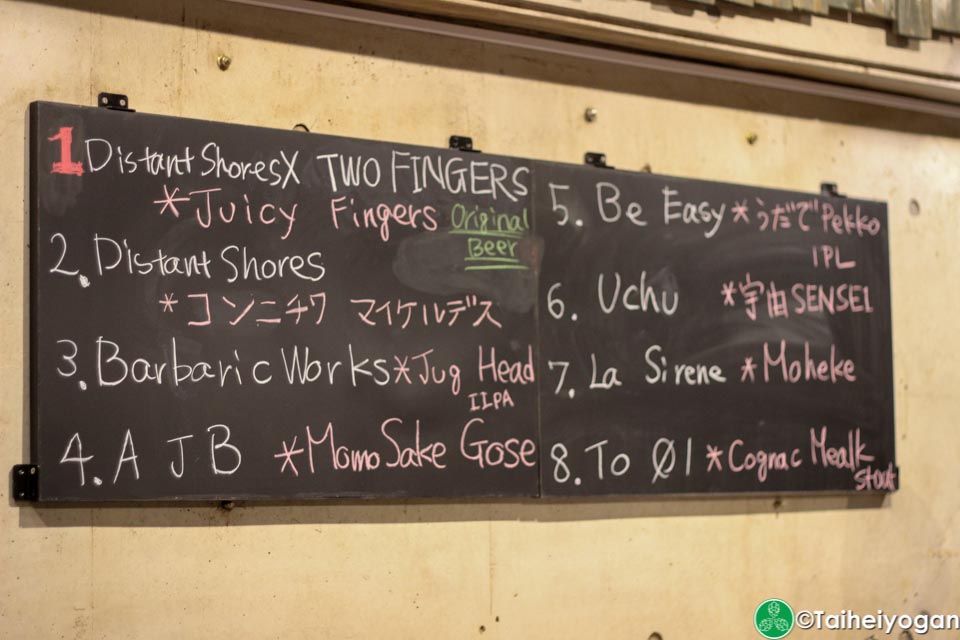 1 Distant Shores X TWO FINGERS
*Juicy Fingers Original
Beer
2. Distant Shores
*コンニチワ マイケルデス
3. Barbaric Works *Jug Head
IIPA
4. A J B *Momo Sake Gose
5. Be Easy *うだで Pekko
IPL
6. Uchu *宇宙 SENSEI
7. La Sirene *Moheke
8. To Ø1 *Cognac Mealk
stout
©Taiheiyogan